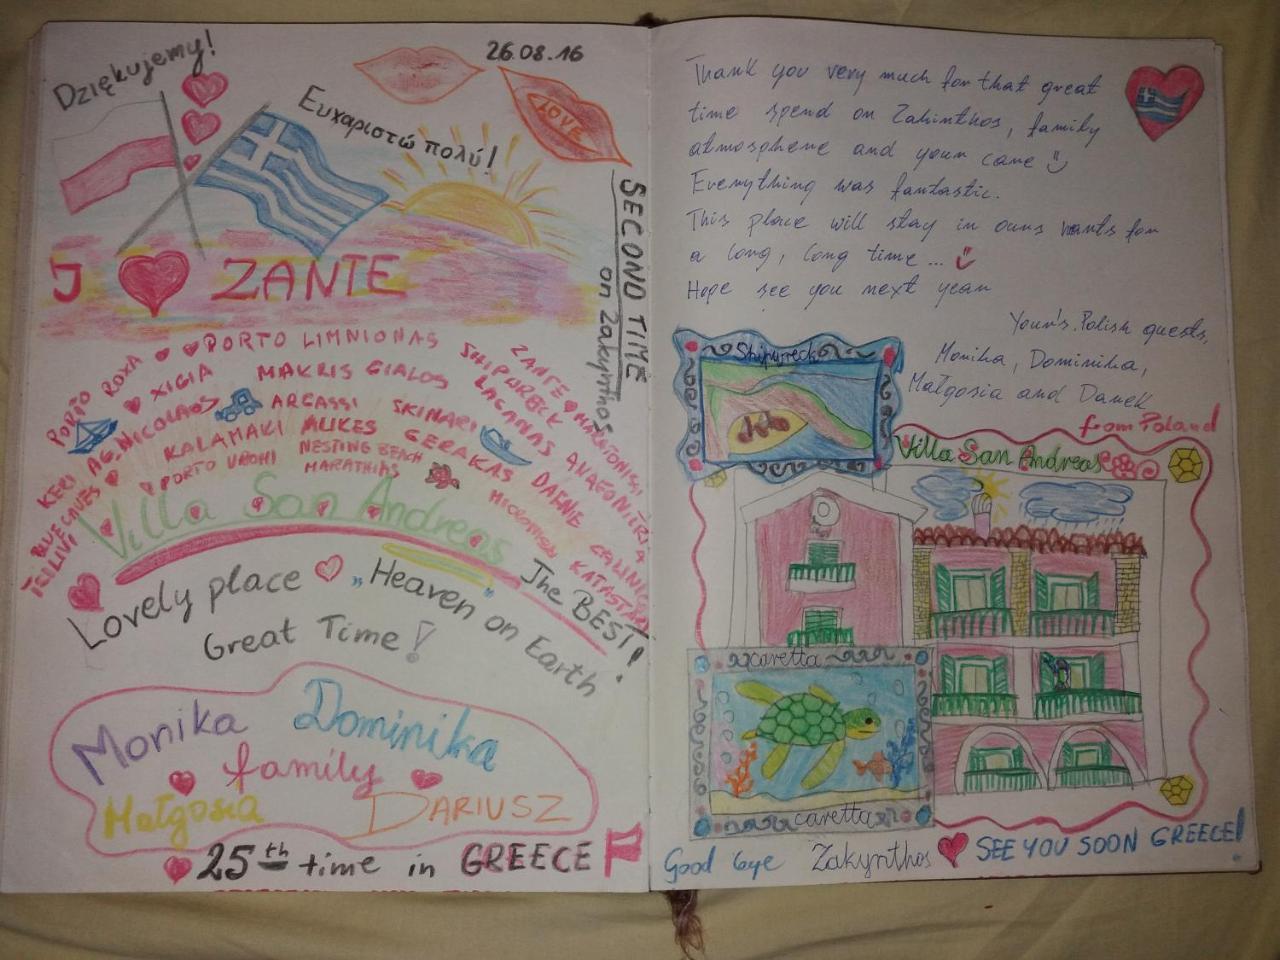 Dziękujemy!
26.08.16
Ευχαριστώ πολύ!
LOVE
SECOND TIME
on Zakynthos
I ZANTE
PORTO LIMNIONAS
PORTO ROXA
XIGIA
MAKRIS GIALOS
SHIPWRECK
ZANTE MARATONISSI
KERI
AG. NICOLAOS
ARGASSI
SKINARI
LAGANAS
KALAMAKI
ALIKES
GERAKAS
BLUE CAVES
PORTO VROMI
NESTING BEACH
MARATHIAS
DAFNE
TSILIVI
Villa San Andreas
Lovely place „Heaven on Earth"
The BEST!
Great Time!
Monika Dominika
family
Małgosia DARIUSZ
25th time in GREECE
Thank you very much for that great
time spend on Zakinthos, family
atmosphere and your care
Everything was fantastic.
This place will stay in ours harts for
a long, long time...
Hope see you next year
Your's Polish guests,
Monika, Dominika,
Małgosia and Darek
from Poland
Shipwreck
Villa San Andreas
caretta
caretta
Good bye Zakynthos SEE YOU SOON GREECE!